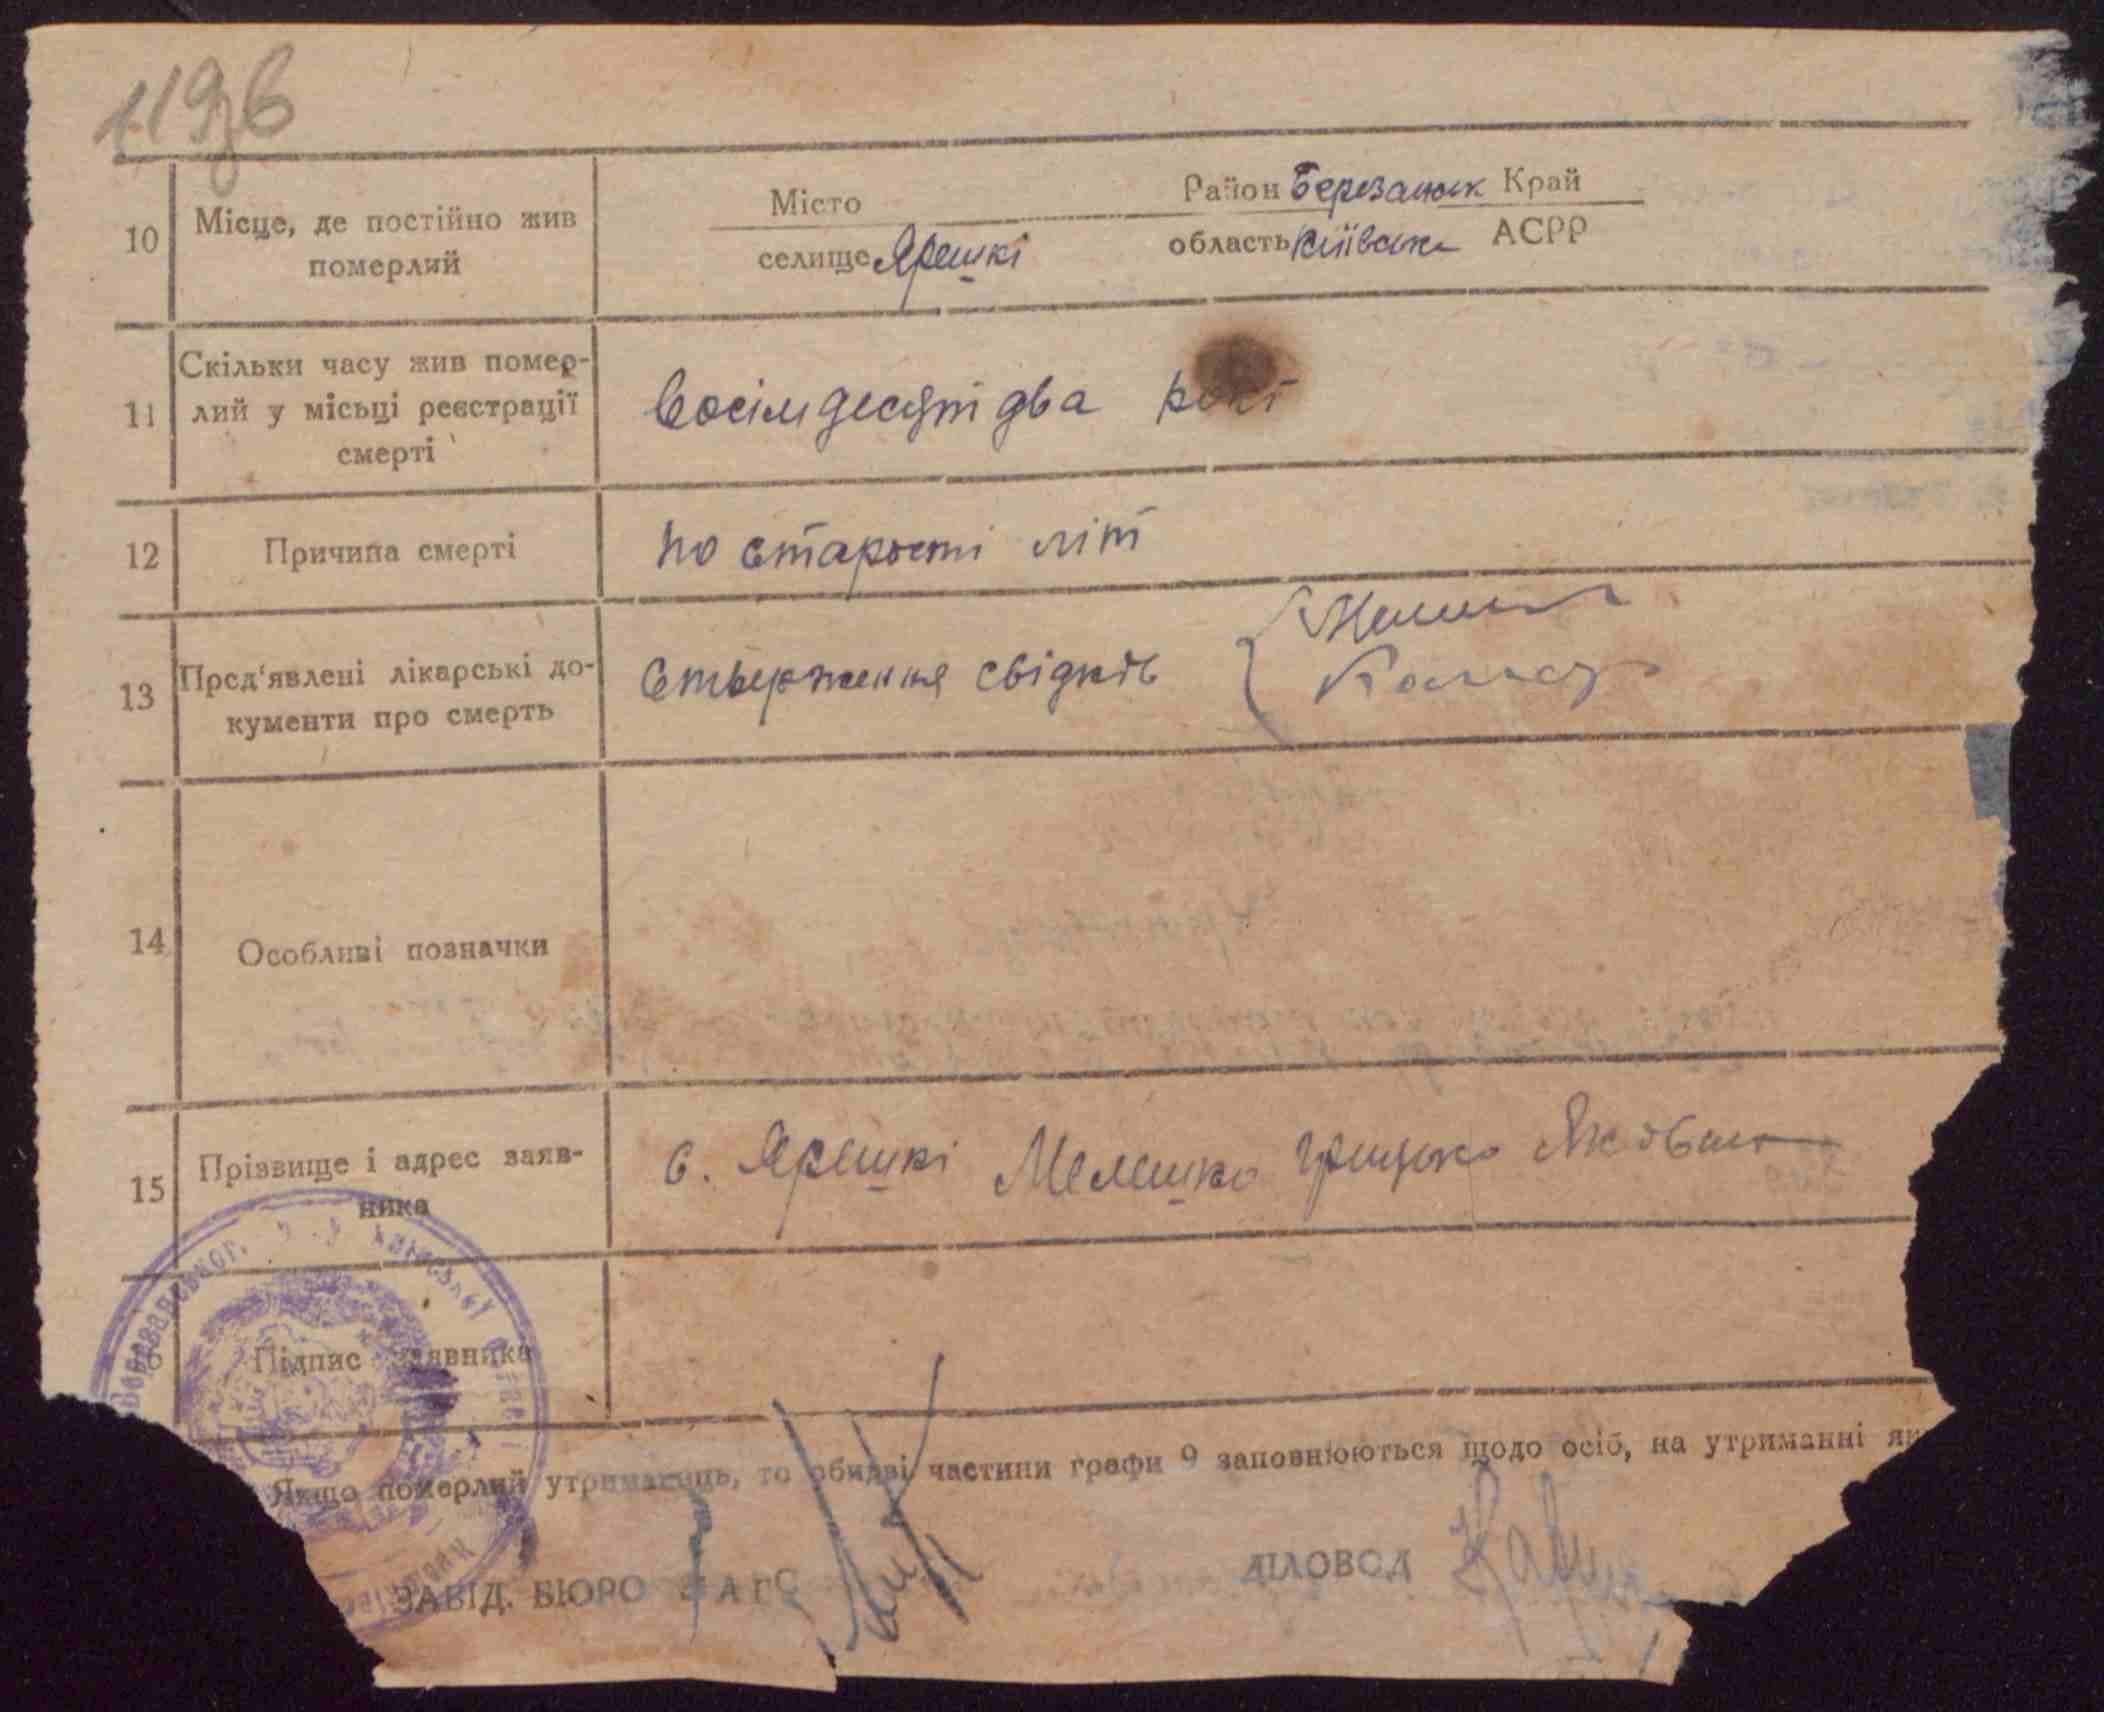 10
Місце, де постійно жив
померлий
Місто
селищеЯрешкі
Район Березанськ Край
область Київська АСРР
11
Скільки часу жив помер-
лий у місьці реєстрації
смерті
Восімдесят два рокі
12
Причина смерті
по старості літ
13
Пред'явлені лікарські до-
кументи про смерть
Стверження свідків
14
Особливі позначки
15
Прізвище і адрес заяв-
ника
с. Ярешкі Мелешко Грицько Яковл
Підпис заявника
Якщо померлий утриманець, то обидві частини графи 9 заповнюються щодо осіб, на утриманні як
ЗАВІД. БЮРО ЗАГС
ДІЛОВОД